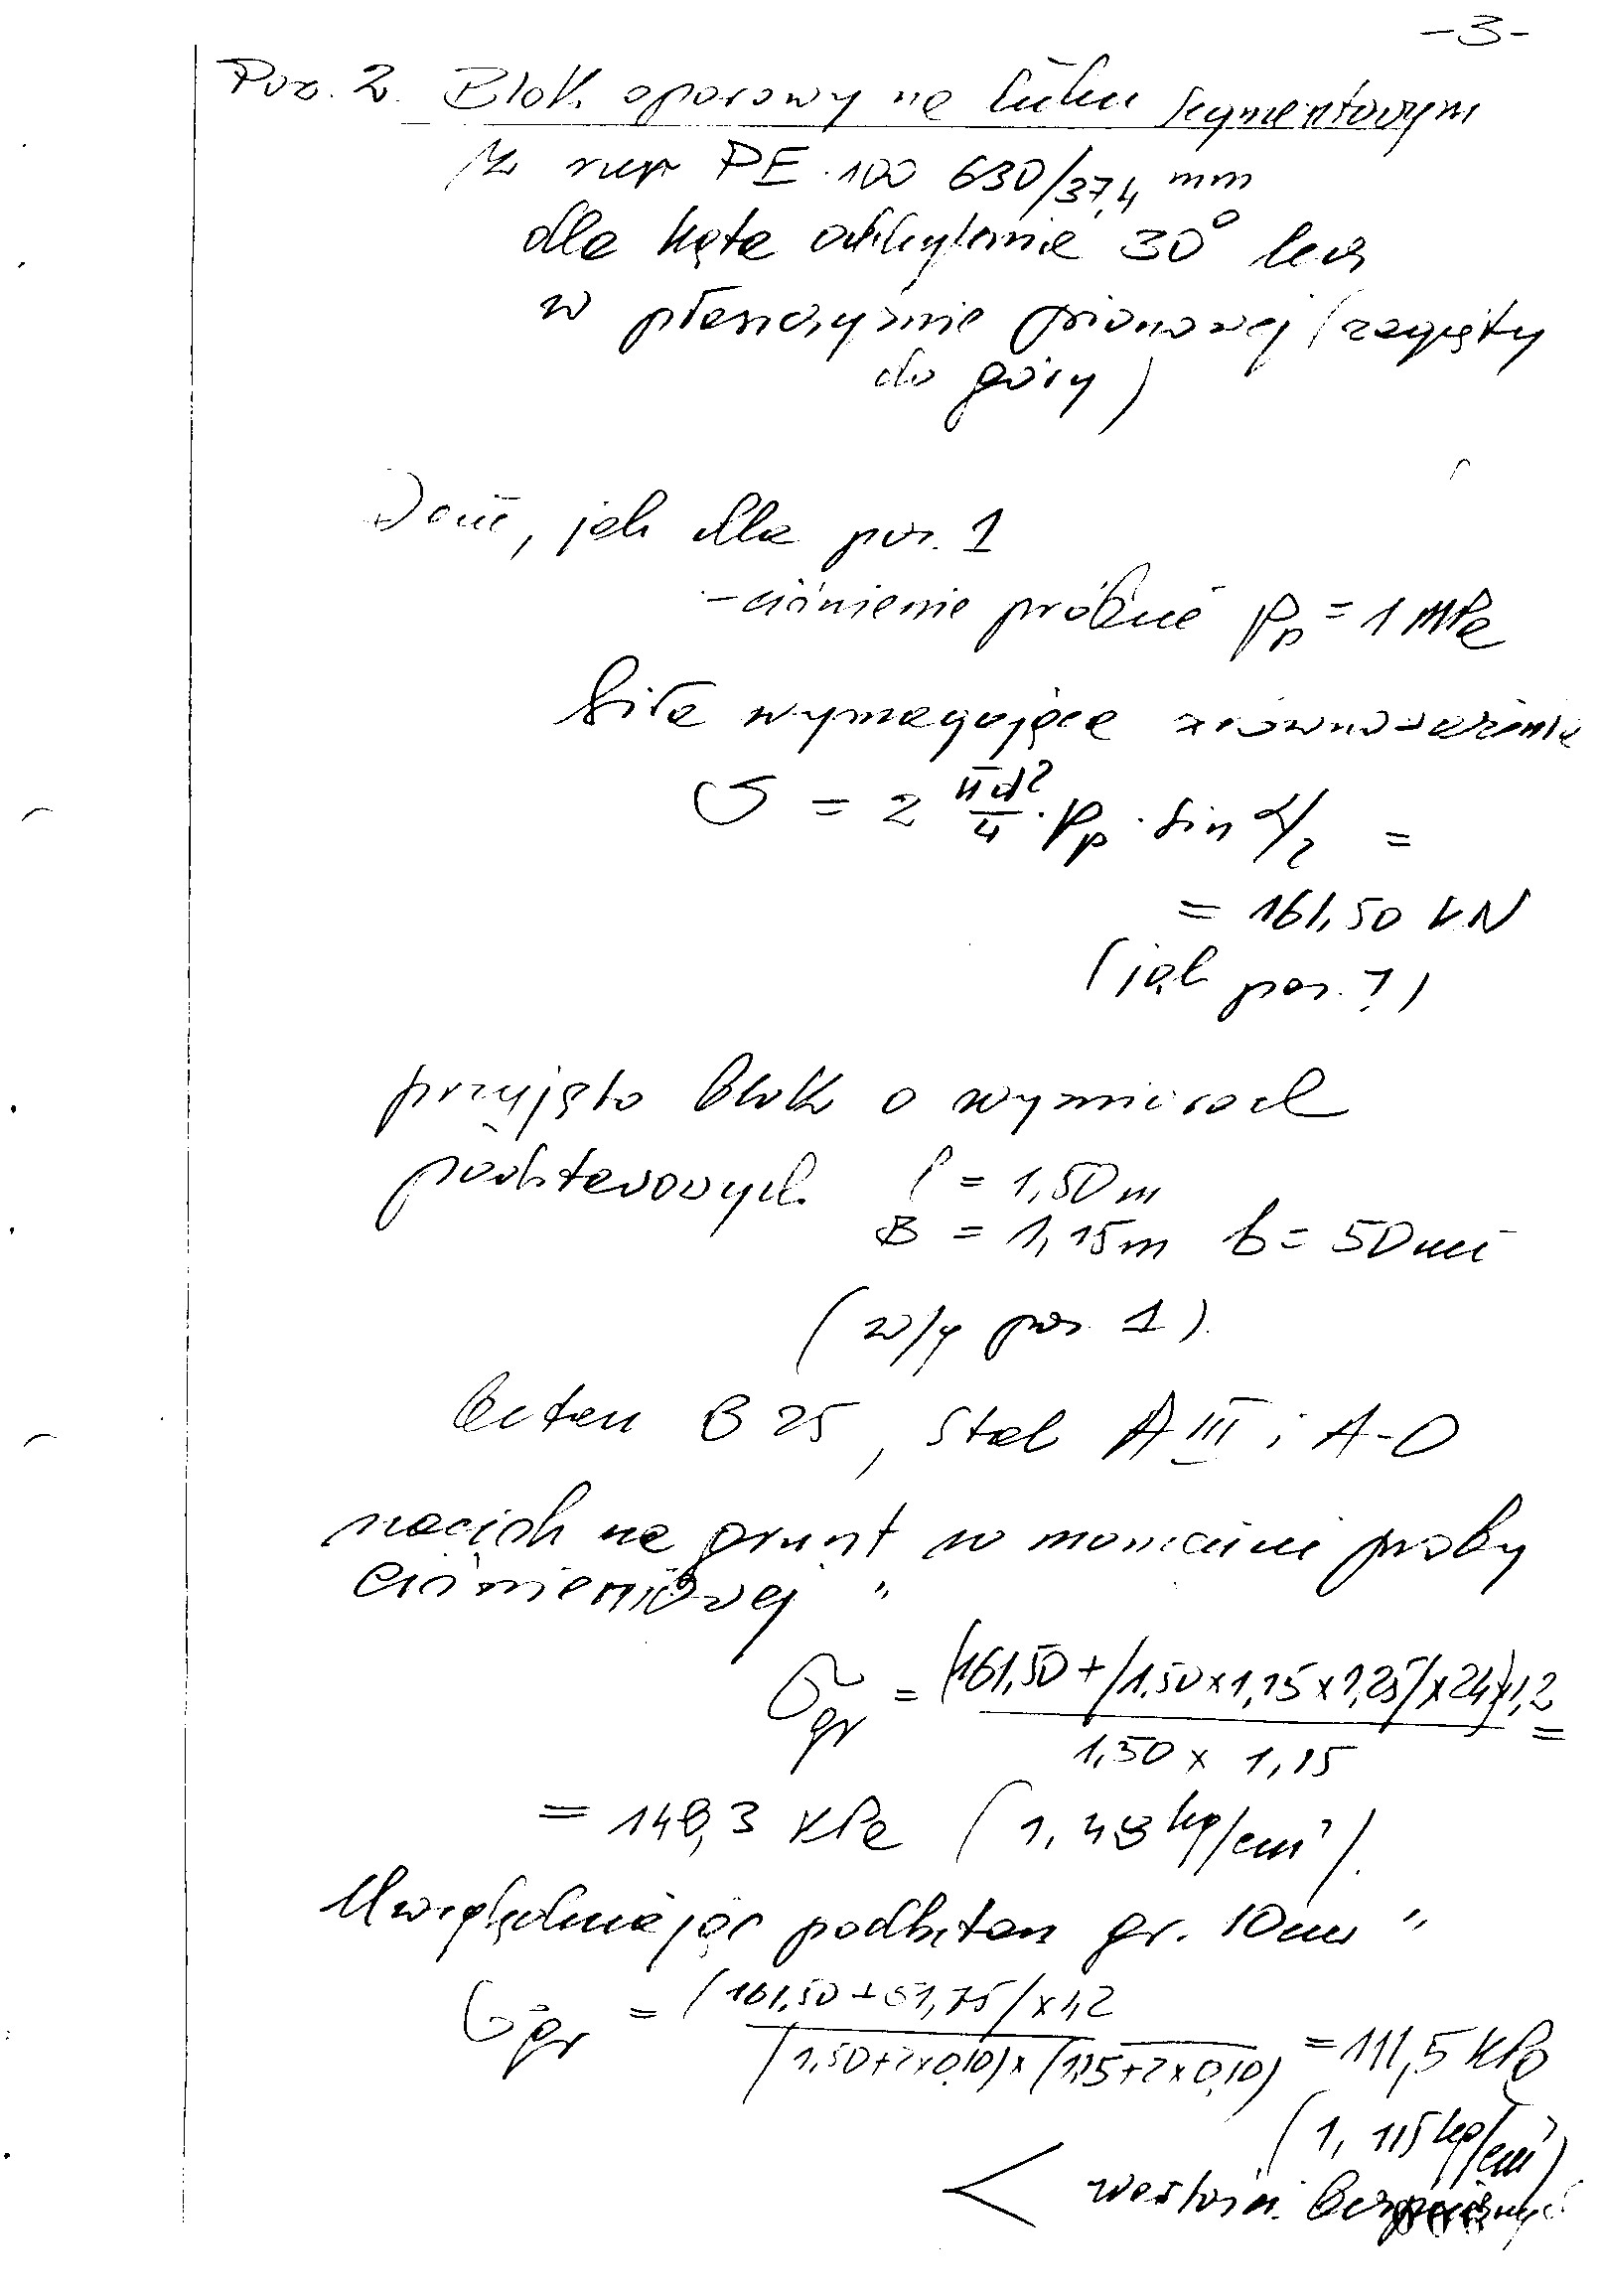 -3-
Poz. 2. Blok oporowy na łuku segmentowym
z rur PE 100 630/37,4 mm
dla kąta odchylenia 30° leży
w płaszczyźnie pionowej (zagięty
do góry)
Dane, jak dla poz. 1
- ciśnienie próbne Pp = 1 MPa
Siła wymagająca zrównoważenia
S = 2 πd²/4 · Pp · sin α/2 =
= 161,50 kN
(jak poz. 1)
przyjęto blok o wymiarach
podstawowych l = 1,50 m
B = 1,15 m b = 50 cm
(w/g poz. 1)
beton B 25, stal A III i A-0
nacisk na grunt w momencie próby
ciśnieniowej "
σgr = (161,50 + (1,50 x 1,15 x 1,25) x 24) x 1,2 / 1,50 x 1,15 =
= 148,3 kPa (1,48 kg/cm²).
Uwzględniając podbeton gr. 10 cm "
σgr = (161,50 + 51,75) x 1,2 / (1,50 + 2 x 0,10) x (1,15 + 2 x 0,10) = 111,5 kPa
(1,115 kg/cm²)
< wartości bezpiecznych